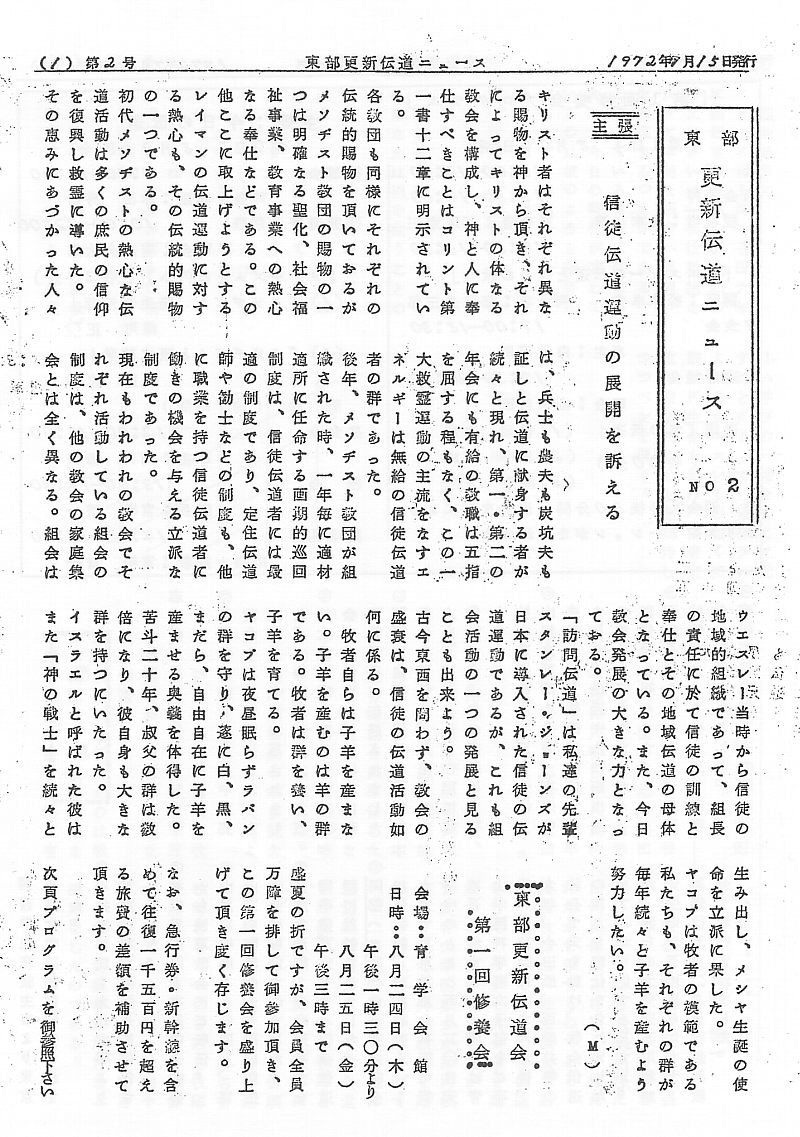 (1) 第2号
東部更新伝道ニュース
1972年7月15日発行
東部
更新伝道ニュース
NO 2
主張
信徒伝道運動の展開を訴える
キリスト者はそれぞれ異な
る賜物を神から頂き、それ
によってキリストの体なる
教会を構成し、神と人に奉
仕すべきことはコリント第
一書十二章に明示されてい
る。
各教団も同様にそれぞれの
伝統的賜物を頂いておるが
メソヂスト教団の賜物の一
つは明確なる聖化、社会福
祉事業、教育事業への熱心
なる奉仕などである。この
他ここに取上げようとする
レイマンの伝道運動に対す
る熱心も、その伝統的賜物
の一つである。
初代メソヂストの熱心な伝
道活動は多くの庶民の信仰
を復興し救霊に導いた。
その恵みにあづかった人々
は、兵士も農夫も炭坑夫も
証しと伝道に献身する者が
続々と現れ、第一・第二の
年会にも有給の教職は五指
を屈する程もなく、この一
大救霊運動の主流をなすエ
ネルギーは無給の信徒伝道
者の群であった。
後年、メソヂスト教団が組
織された時、一年毎に適材
適所に任命する画期的巡回
制度は、信徒伝道者には最
適の制度であり、定住伝道
師や勧士などの制度も、他
に職業を持つ信徒伝道者に
働きの機会を与える立派な
制度であった。
現在もわれわれの教会でそ
れぞれ活動している組会の
制度は、他の教会の家庭集
会とは全く異なる。組会は
ウエスレー当時から信徒の
地域的組織であって、組長
の責任に於て信徒の訓練と
奉仕とその地域伝道の母体
となっている。また、今日
教会発展の大きな力となっ
ておる。
「訪問伝道」は私達の先輩
スタンレー。ジョーンズが
日本に導入された信徒の伝
道運動であるが、これも組
会活動の一つの発展と見る
ことも出来よう。
古今東西を問わず、教会の
盛衰は、信徒の伝道活動如
何に係る。
牧者自らは子羊を産まな
い。子羊を産むのは羊の群
である。牧者は群を養い、
子羊を育てる。
ヤコブは夜昼眠らずラバン
の群を守り、遂に白、黒、
まだら、自由自在に子羊を
産ませる奥義を体得した。
苦斗二十年、叔父の群は数
倍になり、彼自身も大きな
群を持つにいたった。
イスラエルと呼ばれた彼は
また「神の戦士」を続々と
生み出し、メシヤ生誕の使
命を立派に果した。
ヤコブは牧者の模範である
私たちも、それぞれの群が
毎年続々と子羊を産むよう
努力したい。
(M)
東部更新伝道会
第一回修養会
会場:青学会館
日時:八月二四日(木)
午後一時三〇分より
八月二五日(金)
午後三時まで
盛夏の折ですが、会員全員
万障を排して御参加頂き、
この第一回修養会を盛り上
げて頂き度く存じます。
なお、急行券・新幹線を含
めて往復一千五百円を超え
る旅費の差額を補助させて
頂きます。
次頁プログラムを御参照下さい